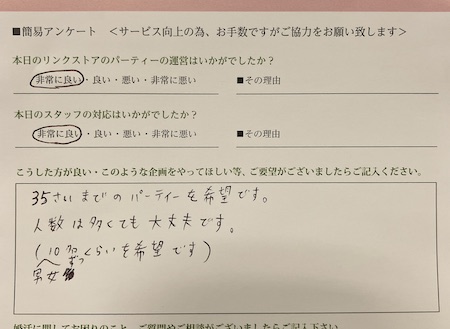 ■簡易アンケート　＜サービス向上の為、お手数ですがご協力をお願い致します＞
本日のリンクストアのパーティーの運営はいかがでしたか？
非常に良い・良い・悪い・非常に悪い　■その理由
本日のスタッフの対応はいかがでしたか？
非常に良い・良い・悪い・非常に悪い　■その理由
こうした方が良い・このような企画をやってほしい等、ご要望がございましたらご記入ください。
35さいまでのパーティーを希望です。
人数は多くても大丈夫です。
(10名ずつくらいを希望です)
男女
婚活に関してお困りのこと、ご質問やご相談がございましたらご記入下さい